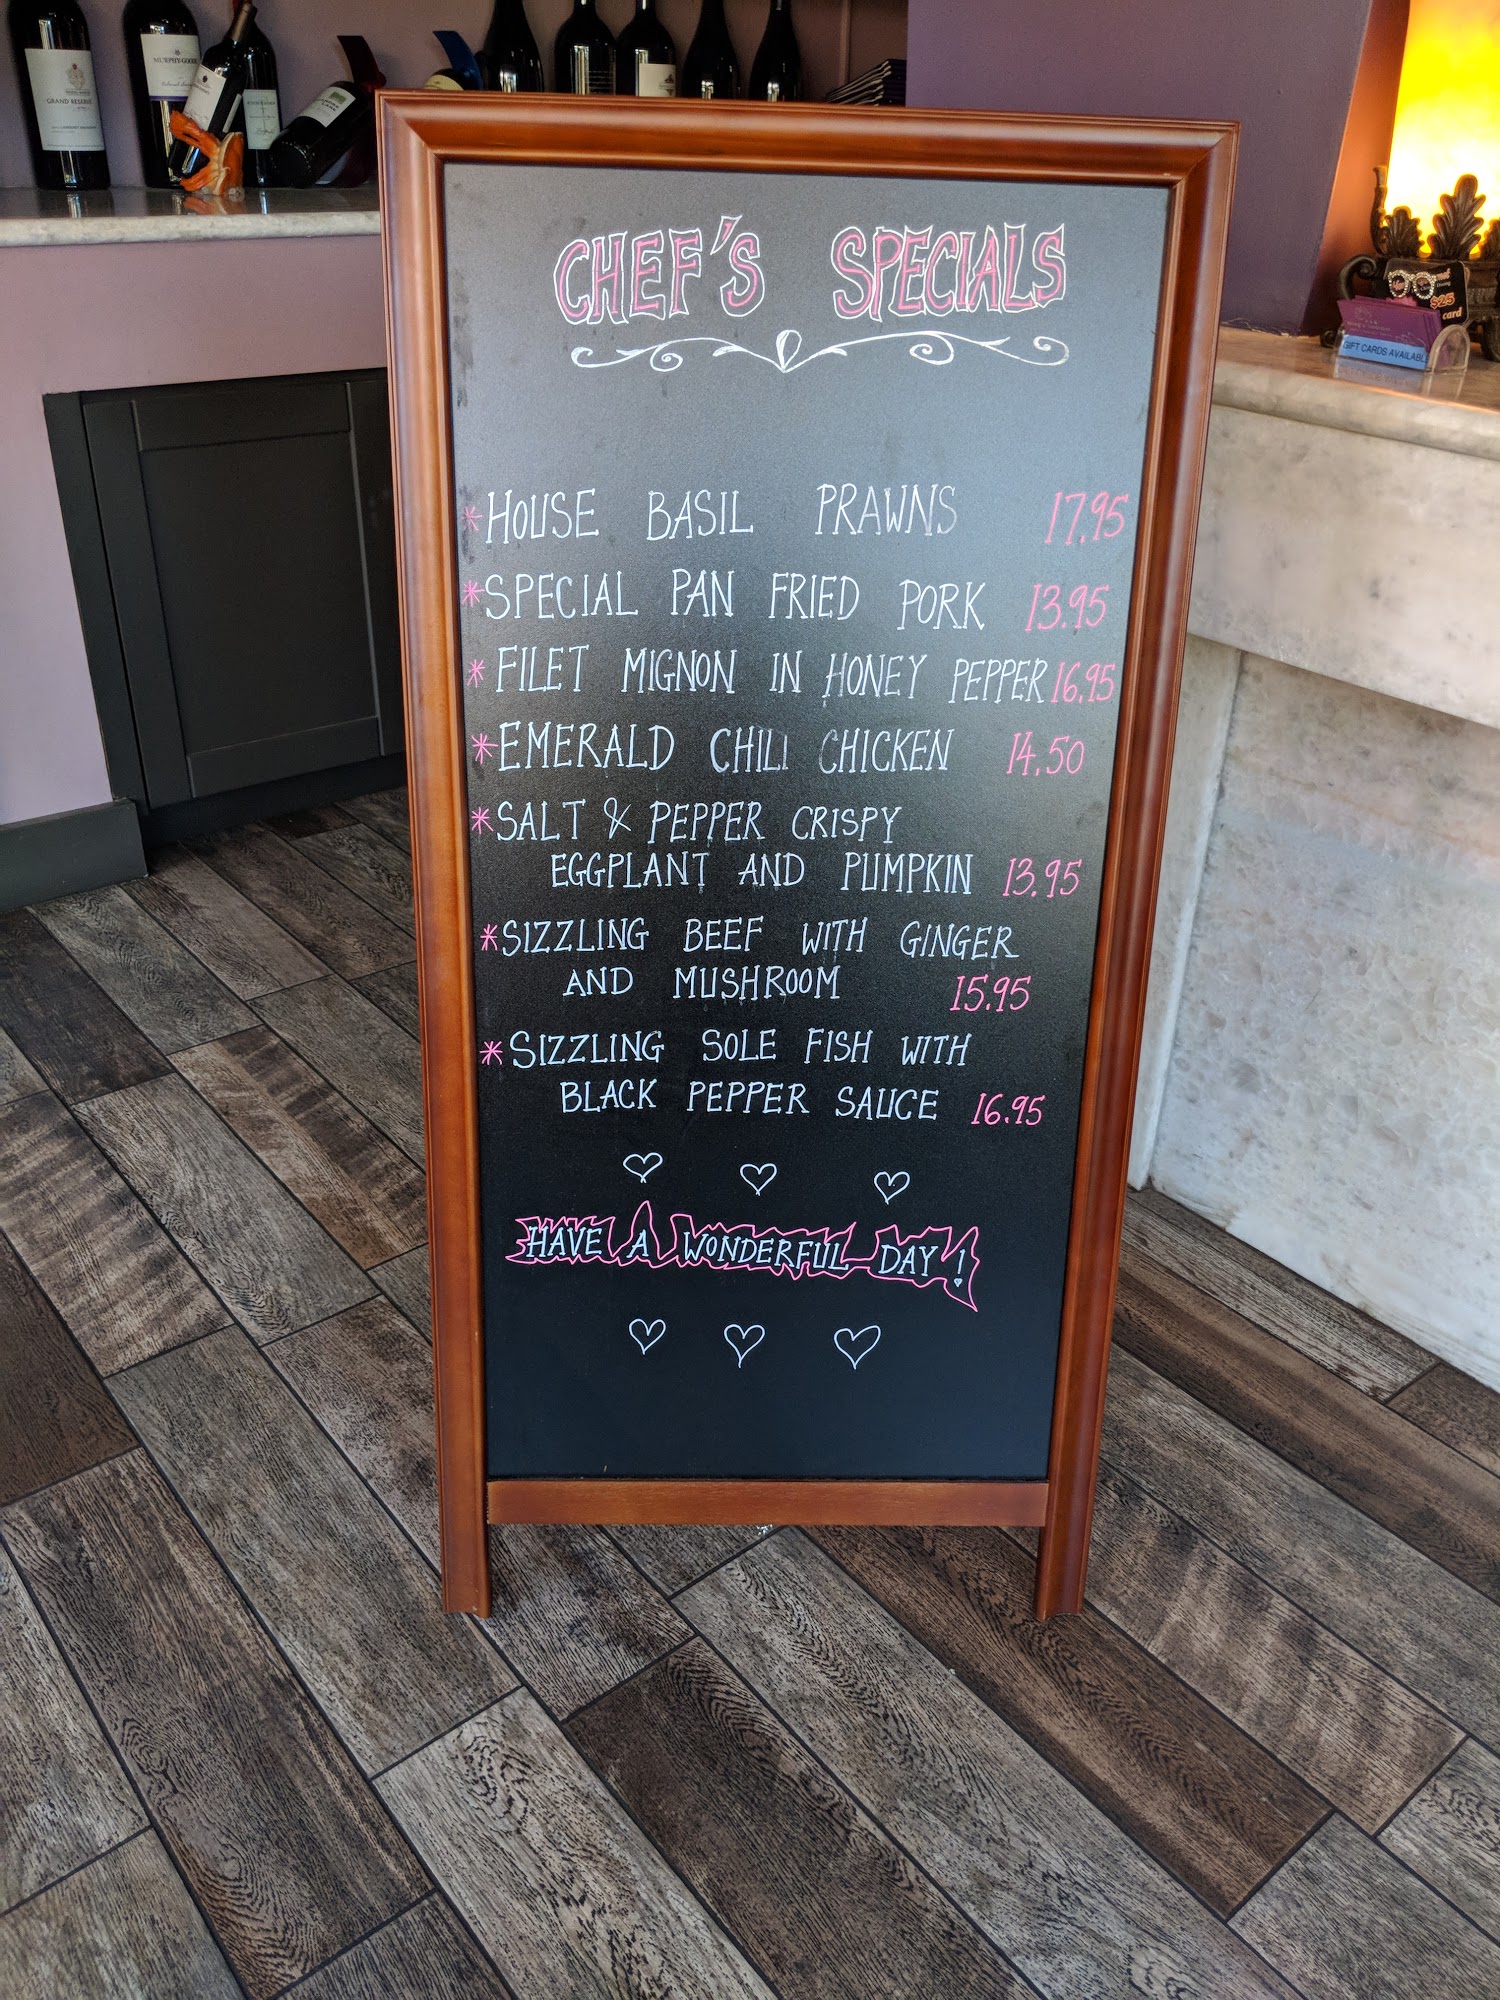 CHEF'S SPECIALS
*HOUSE BASIL PRAWNS 17.95
*SPECIAL PAN FRIED PORK 13.95
*FILET MIGNON IN HONEY PEPPER 16.95
*EMERALD CHILI CHICKEN 14.50
*SALT & PEPPER CRISPY
EGGPLANT AND PUMPKIN 13.95
*SIZZLING BEEF WITH GINGER
AND MUSHROOM 15.95
*SIZZLING SOLE FISH WITH
BLACK PEPPER SAUCE 16.95
HAVE A WONDERFUL DAY!
GRAND RESERVE
MURPHY-GOODE
$25
card
GIFT CARDS AVAILABL